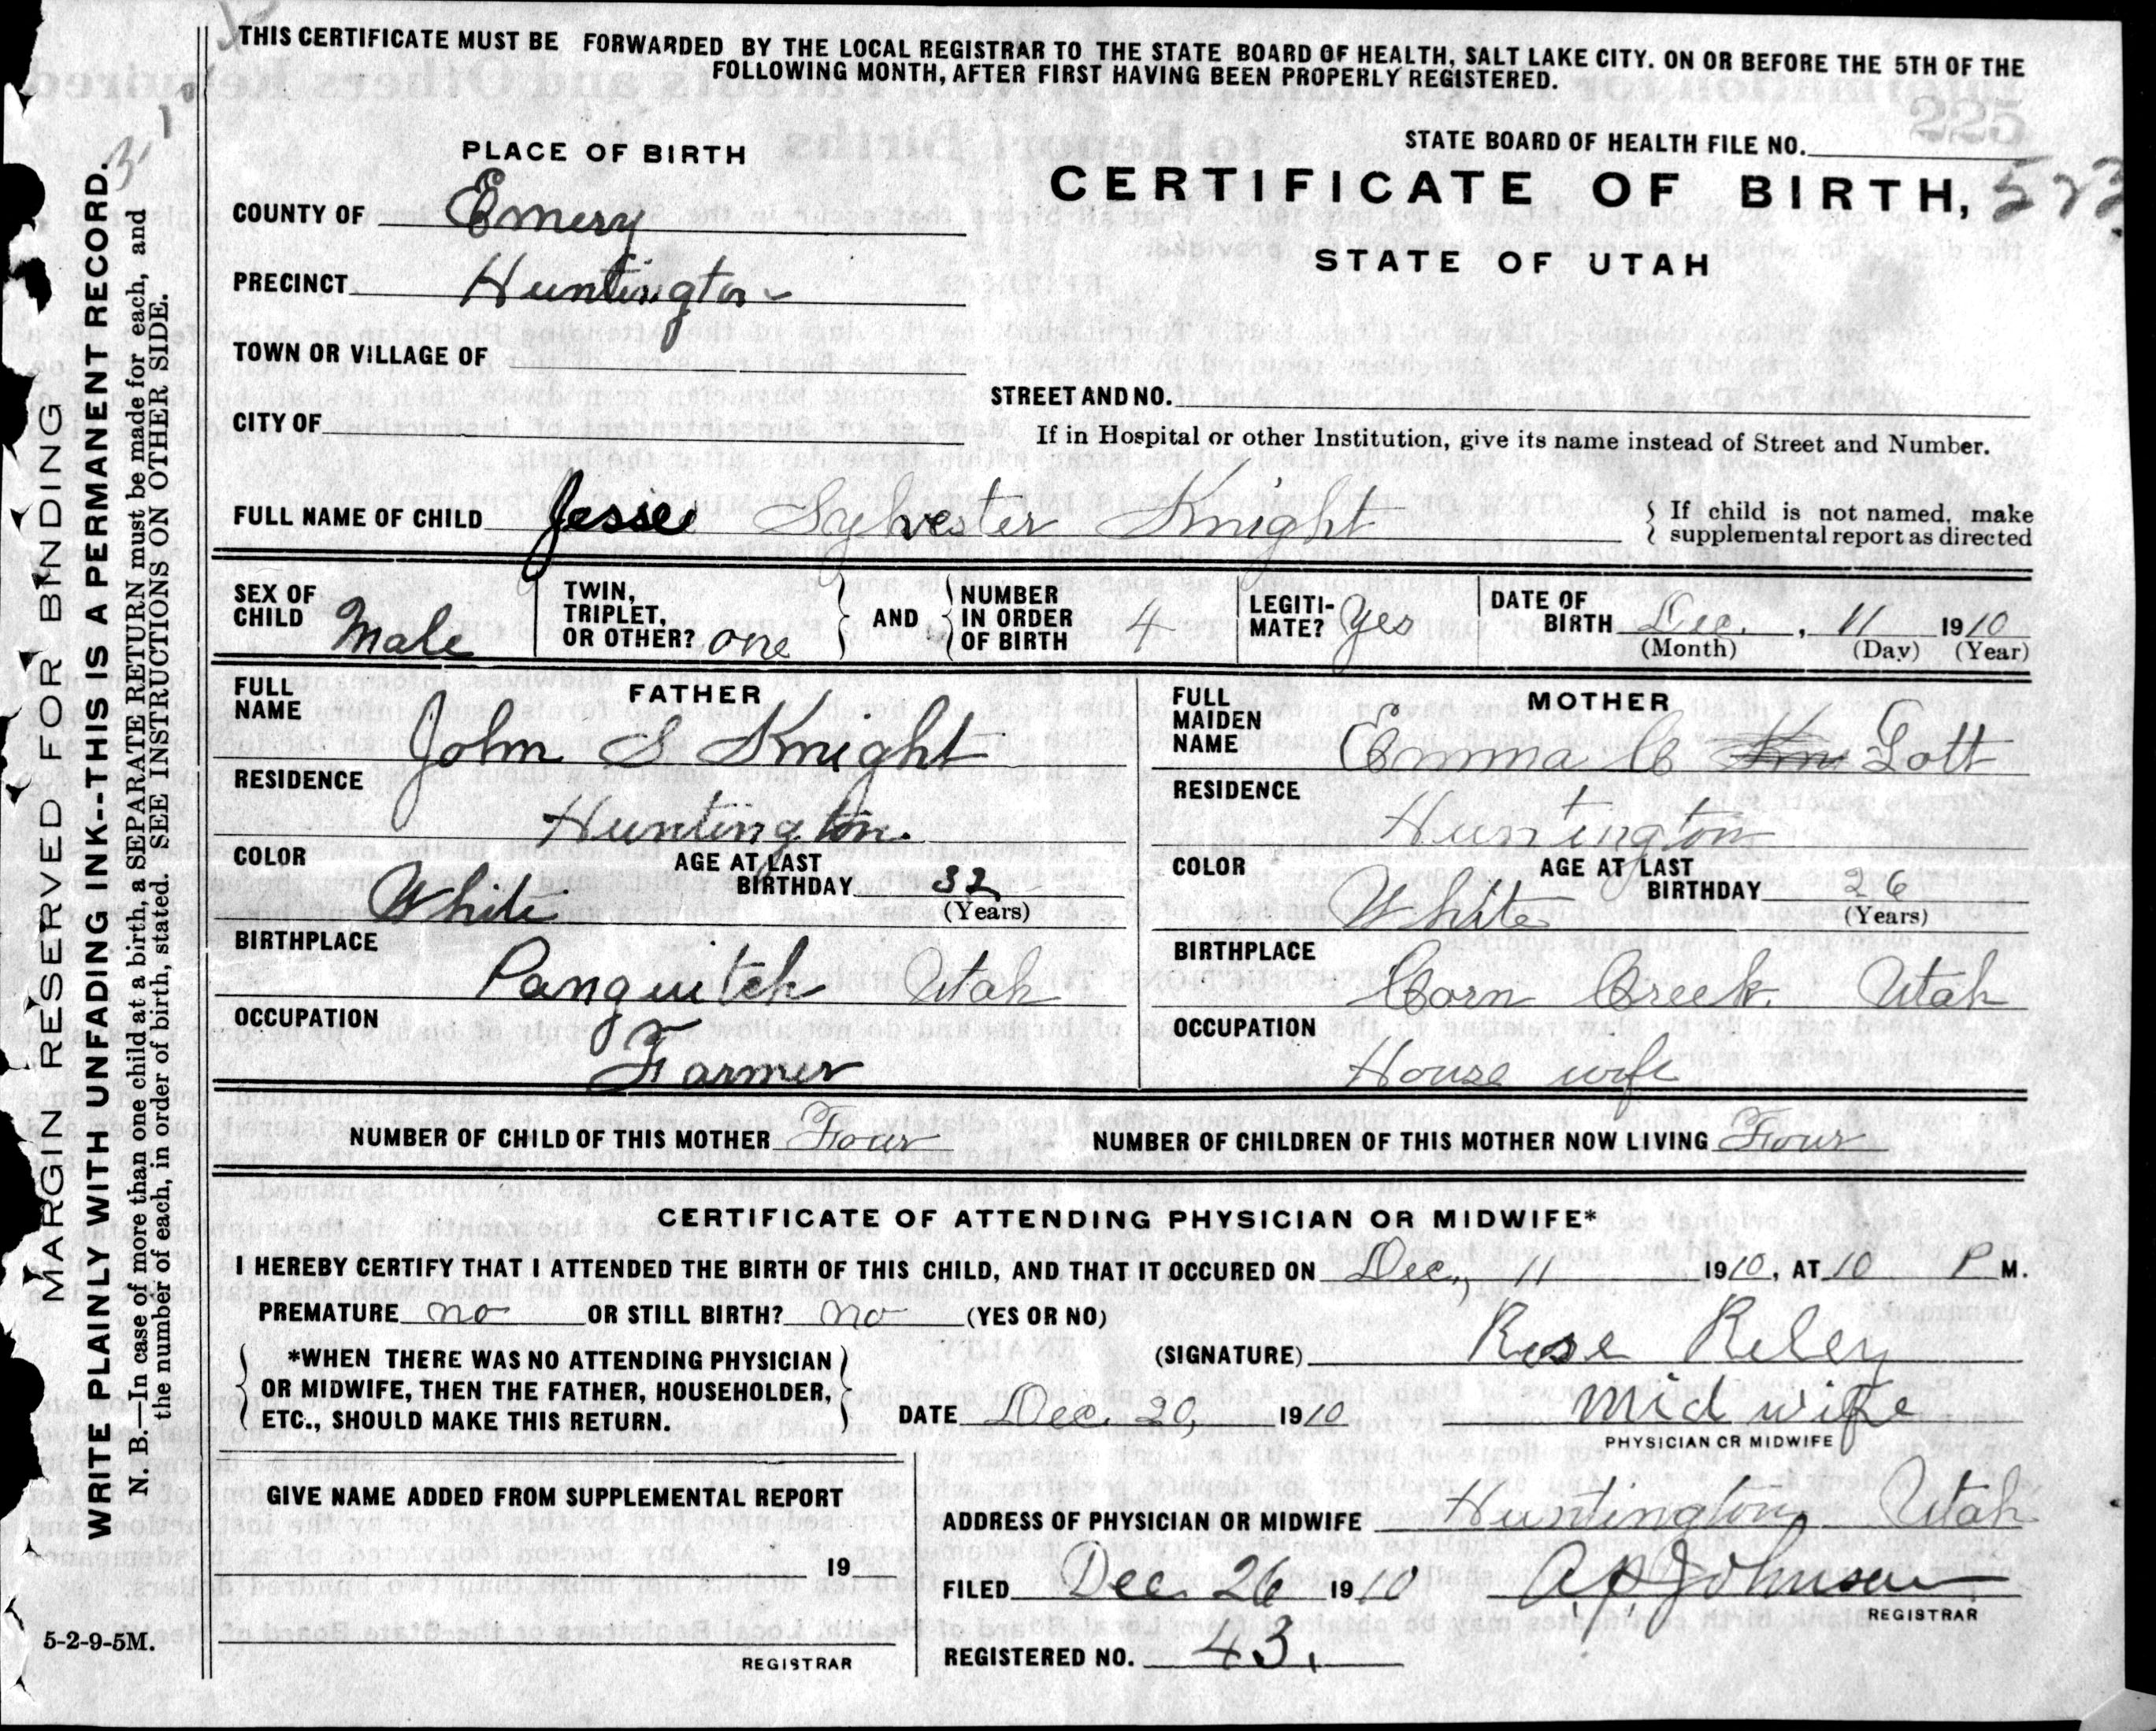 THIS CERTIFICATE MUST BE FORWARDED BY THE LOCAL REGISTRAR TO THE STATE BOARD OF HEALTH, SALT LAKE CITY. ON OR BEFORE THE 5TH OF THE
FOLLOWING MONTH, AFTER FIRST HAVING BEEN PROPERLY REGISTERED.
225
STATE BOARD OF HEALTH FILE NO.
PLACE OF BIRTH
CERTIFICATE OF BIRTH, 573
STATE OF UTAH
COUNTY OF Emery
PRECINCT Huntington
TOWN OR VILLAGE OF
STREET AND NO.
CITY OF
If in Hospital or other Institution, give its name instead of Street and Number.
FULL NAME OF CHILD Jesse Sylvester Knight
If child is not named, make
supplemental report as directed
SEX OF CHILD Male
TWIN, TRIPLET, OR OTHER? one
AND
NUMBER IN ORDER OF BIRTH 4
LEGITIMATE? Yes
DATE OF BIRTH Dec. , 11 1910
(Month) (Day) (Year)
FATHER
FULL NAME John S Knight
RESIDENCE
Huntington.
COLOR White
AGE AT LAST BIRTHDAY 32
(Years)
BIRTHPLACE
Panguitch Utah
OCCUPATION
Farmer
MOTHER
FULL MAIDEN NAME Emma C Lott
RESIDENCE
Huntington
COLOR White
AGE AT LAST BIRTHDAY 26
(Years)
BIRTHPLACE
Corn Creek. Utah
OCCUPATION
House wife
NUMBER OF CHILD OF THIS MOTHER Four NUMBER OF CHILDREN OF THIS MOTHER NOW LIVING Four
CERTIFICATE OF ATTENDING PHYSICIAN OR MIDWIFE*
I HEREBY CERTIFY THAT I ATTENDED THE BIRTH OF THIS CHILD, AND THAT IT OCCURED ON Dec., 11 1910, AT 10 P M.
PREMATURE no OR STILL BIRTH? no (YES OR NO)
*WHEN THERE WAS NO ATTENDING PHYSICIAN
OR MIDWIFE, THEN THE FATHER, HOUSEHOLDER,
ETC., SHOULD MAKE THIS RETURN.
(SIGNATURE) Rose Riley
DATE Dec. 20, 1910 Mid wife
PHYSICIAN OR MIDWIFE
GIVE NAME ADDED FROM SUPPLEMENTAL REPORT
19
REGISTRAR
ADDRESS OF PHYSICIAN OR MIDWIFE Huntington, Utah
FILED Dec. 26 1910 A.P. Johnson
REGISTRAR
REGISTERED NO. 43.
5-2-9-5M.
MARGIN RESERVED FOR BINDING
WRITE PLAINLY WITH UNFADING INK--THIS IS A PERMANENT RECORD.
N. B.—In case of more than one child at a birth, a SEPARATE RETURN must be made for each, and
the number of each, in order of birth, stated. SEE INSTRUCTIONS ON OTHER SIDE.